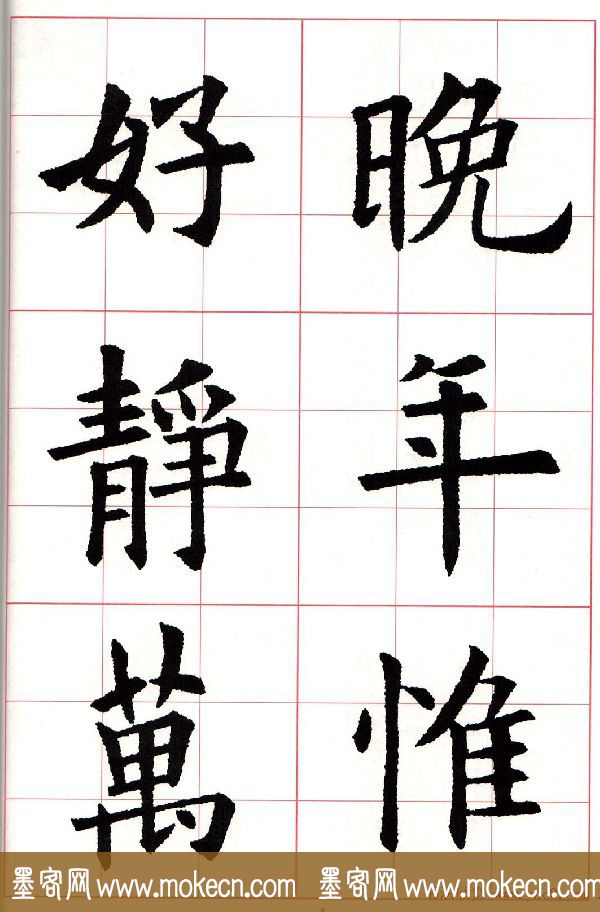 晚年惟
好靜萬
墨客网 www.mokecn.com 墨客网 www.mokecn.com